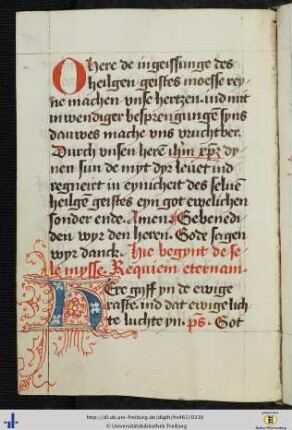 O here de ingeissunge des
heilgen geistes moesse rey
ne machen vnse hertzen. ind mit
inwendiger besprengungē syns
dauwes mache vns vruchtber.
Durch vnsen herē ihm xp̄m dy
nen sun de myt dyr leuet ind
regneirt in eynicheit des seluē
heilgē geistes eyn got ewelichen
sonder ende. Amen. Gebenedi
den wyr den heren. Gode sagen
wyr danck. Hie begynt de se
le mysse. Requiem eternam.
Here gyff yn de ewige
raste. ind dat ewige lich
te luchte yn. ps. Got
http://dl.ub.uni-freiburg.de/diglit/hs463/0236
© Universitätsbibliothek Freiburg